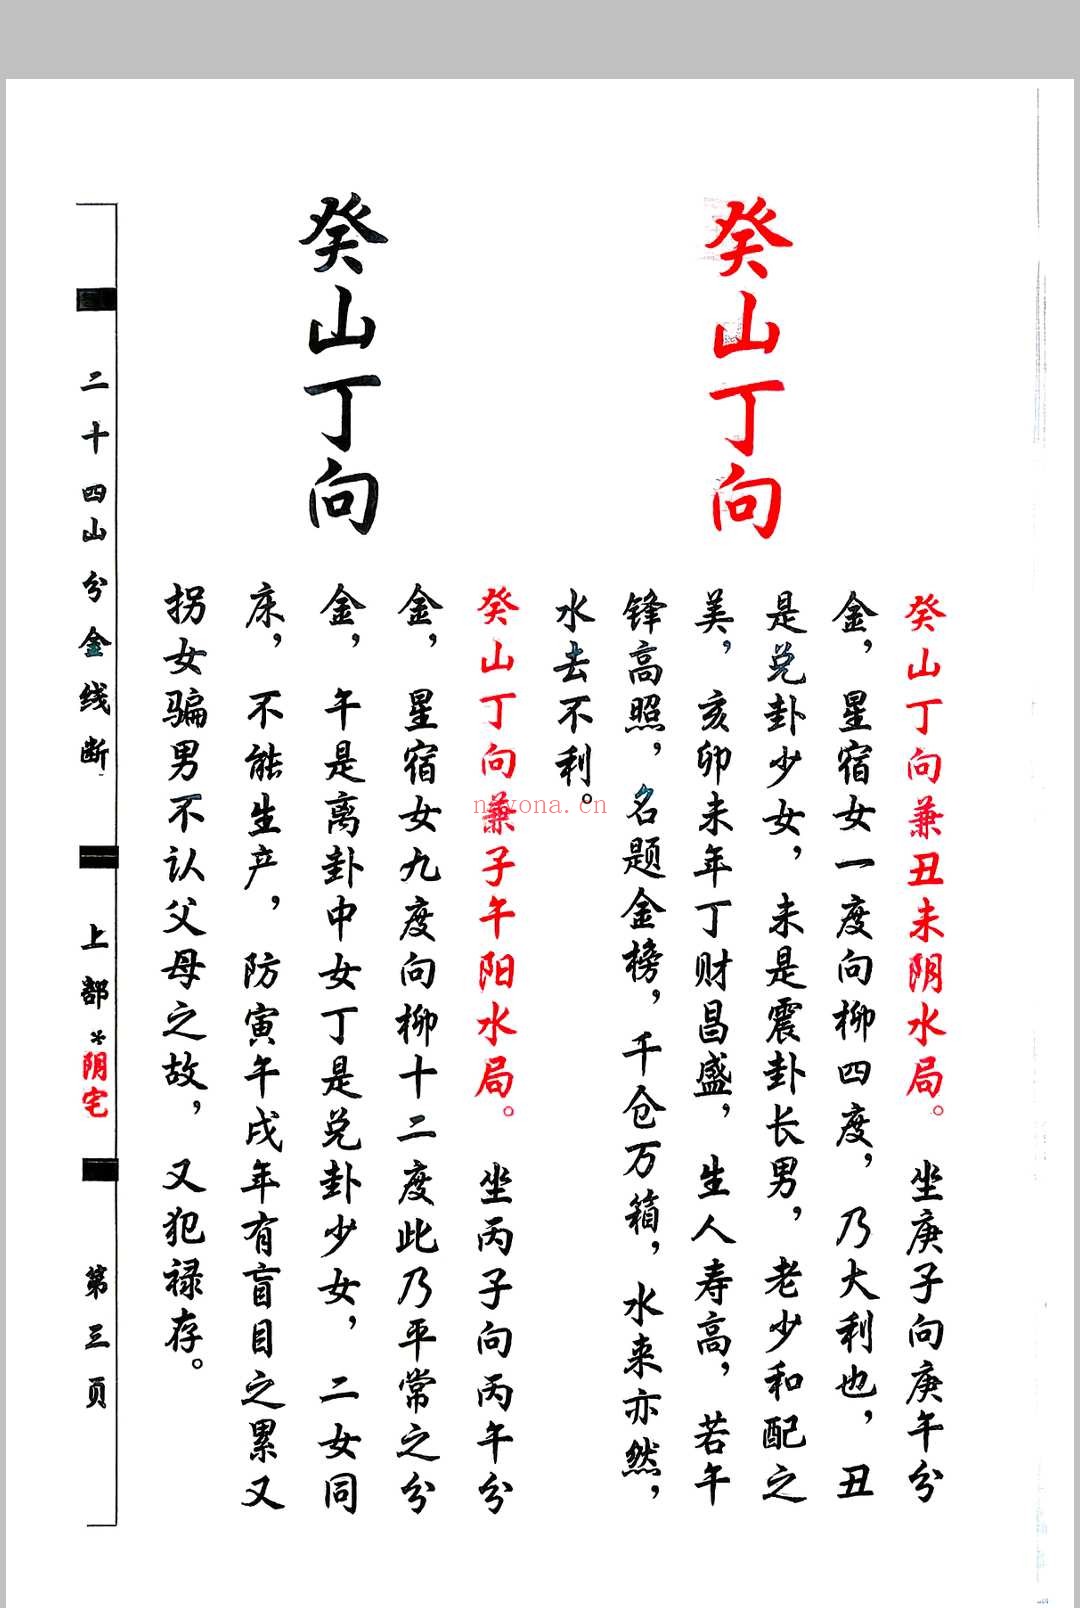 癸山丁向
癸山丁向兼丑未阴水局。坐庚子向庚午分
金，星宿女一度向柳四度，乃大利也，丑
是兑卦少女，未是震卦长男，老少和配之
美，亥卯未年丁财昌盛，生人寿高，若午
锋高照，名题金榜，千仓万箱，水来亦然，
水去不利。
癸山丁向
癸山丁向兼子午阳水局。坐丙子向丙午分
金，星宿女九度向柳十二度此乃平常之分
金，午是离卦中女丁是兑卦少女，二女同
床，不能生产，防寅午戌年有盲目之累又
拐女骗男不认父母之故，又犯禄存。
二十四山分金线断
上部*阴宅
第三页
nayona.cn